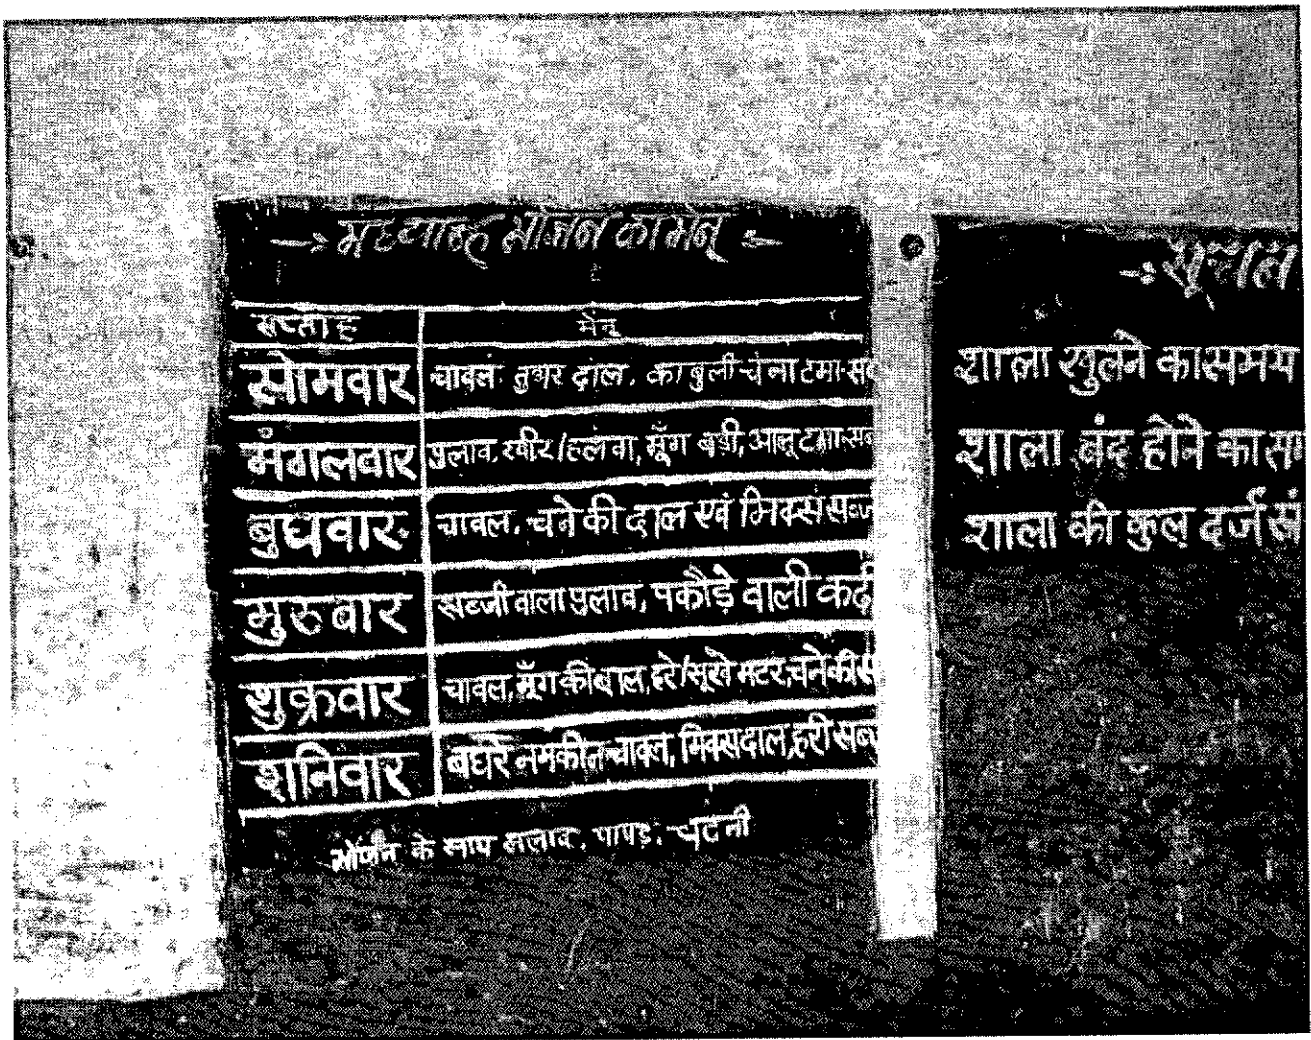 मध्यान्ह भोजन का मेनू
सप्ताह मेनू
सोमवार चावल, तुअर दाल, काबुली चना टमा.
मंगलवार पुलाव, खीर/हलवा, मूँग बड़ी, आलू टमा.
बुधवार चावल, चने की दाल एवं मिक्स
गुरुवार सब्जी वाला पुलाव, पकौड़े वाली कढ़ी
शुक्रवार चावल, मूँग की दाल, हरे/सूखे मटर, चने की
शनिवार बघारे नमकीन चावल, मिक्स दाल, हरी
भोजन के साथ सलाद, पापड़, चटनी
शाला खुलने का समय
शाला बंद होने का
शाला की कुल दर्ज